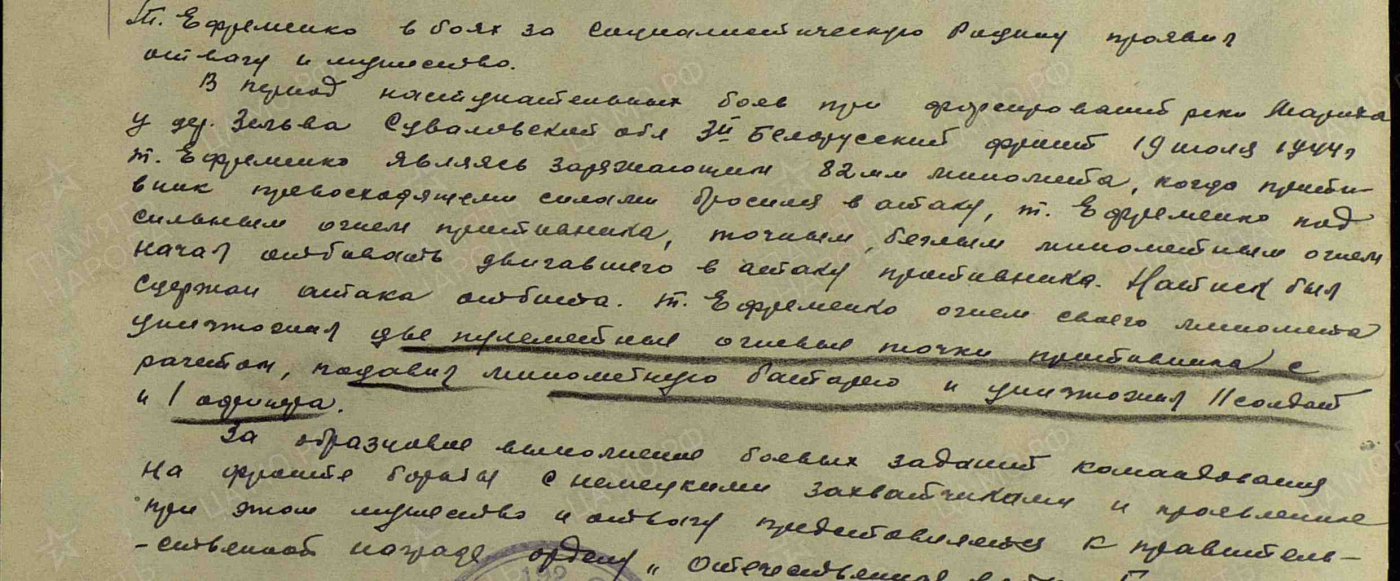 т. Ефременко в боях за социалистическую Родину проявил
отвагу и мужество.
В период наступательных боев при форсировании реки Мариха
у дер. Зельва Сувалковский обл 3й Белорусский фронт 19 июля 1944г
т. Ефременко являясь заряжающим 82мм миномета, когда проти-
вник превосходящими силами бросился в атаку, т. Ефременко под
сильным огнем противника, точным, беглым минометным огнем
начал отбивать двигавшего в атаку противника. Натиск был
сдержан атака отбита. т. Ефременко огнем своего миномета
уничтожил две пулеметные огневые точки противника с
расчетом, подавил минометную батарею и уничтожил 11 солдат
и 1 офицера.
За образцовое выполнение боевых заданий командования
на фронте борьбы с немецкими захватчиками и проявленные
при этом мужество и отвагу представляется к правитель-
-ственной награде ордену „Отечественная